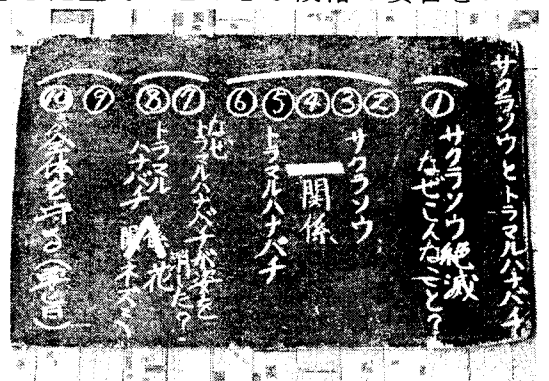 サクラソウとトラマルハナバチ
①
サクラソウ絶滅
なぜこんなこと?
②③④⑤⑥
サクラソウ
関係
トラマルハナバチ
⑦⑧
なぜ
トラマルハナバチが姿を
消した?
トラマル
ハナバチ
花
ネズミ
⑨⑩
全体を